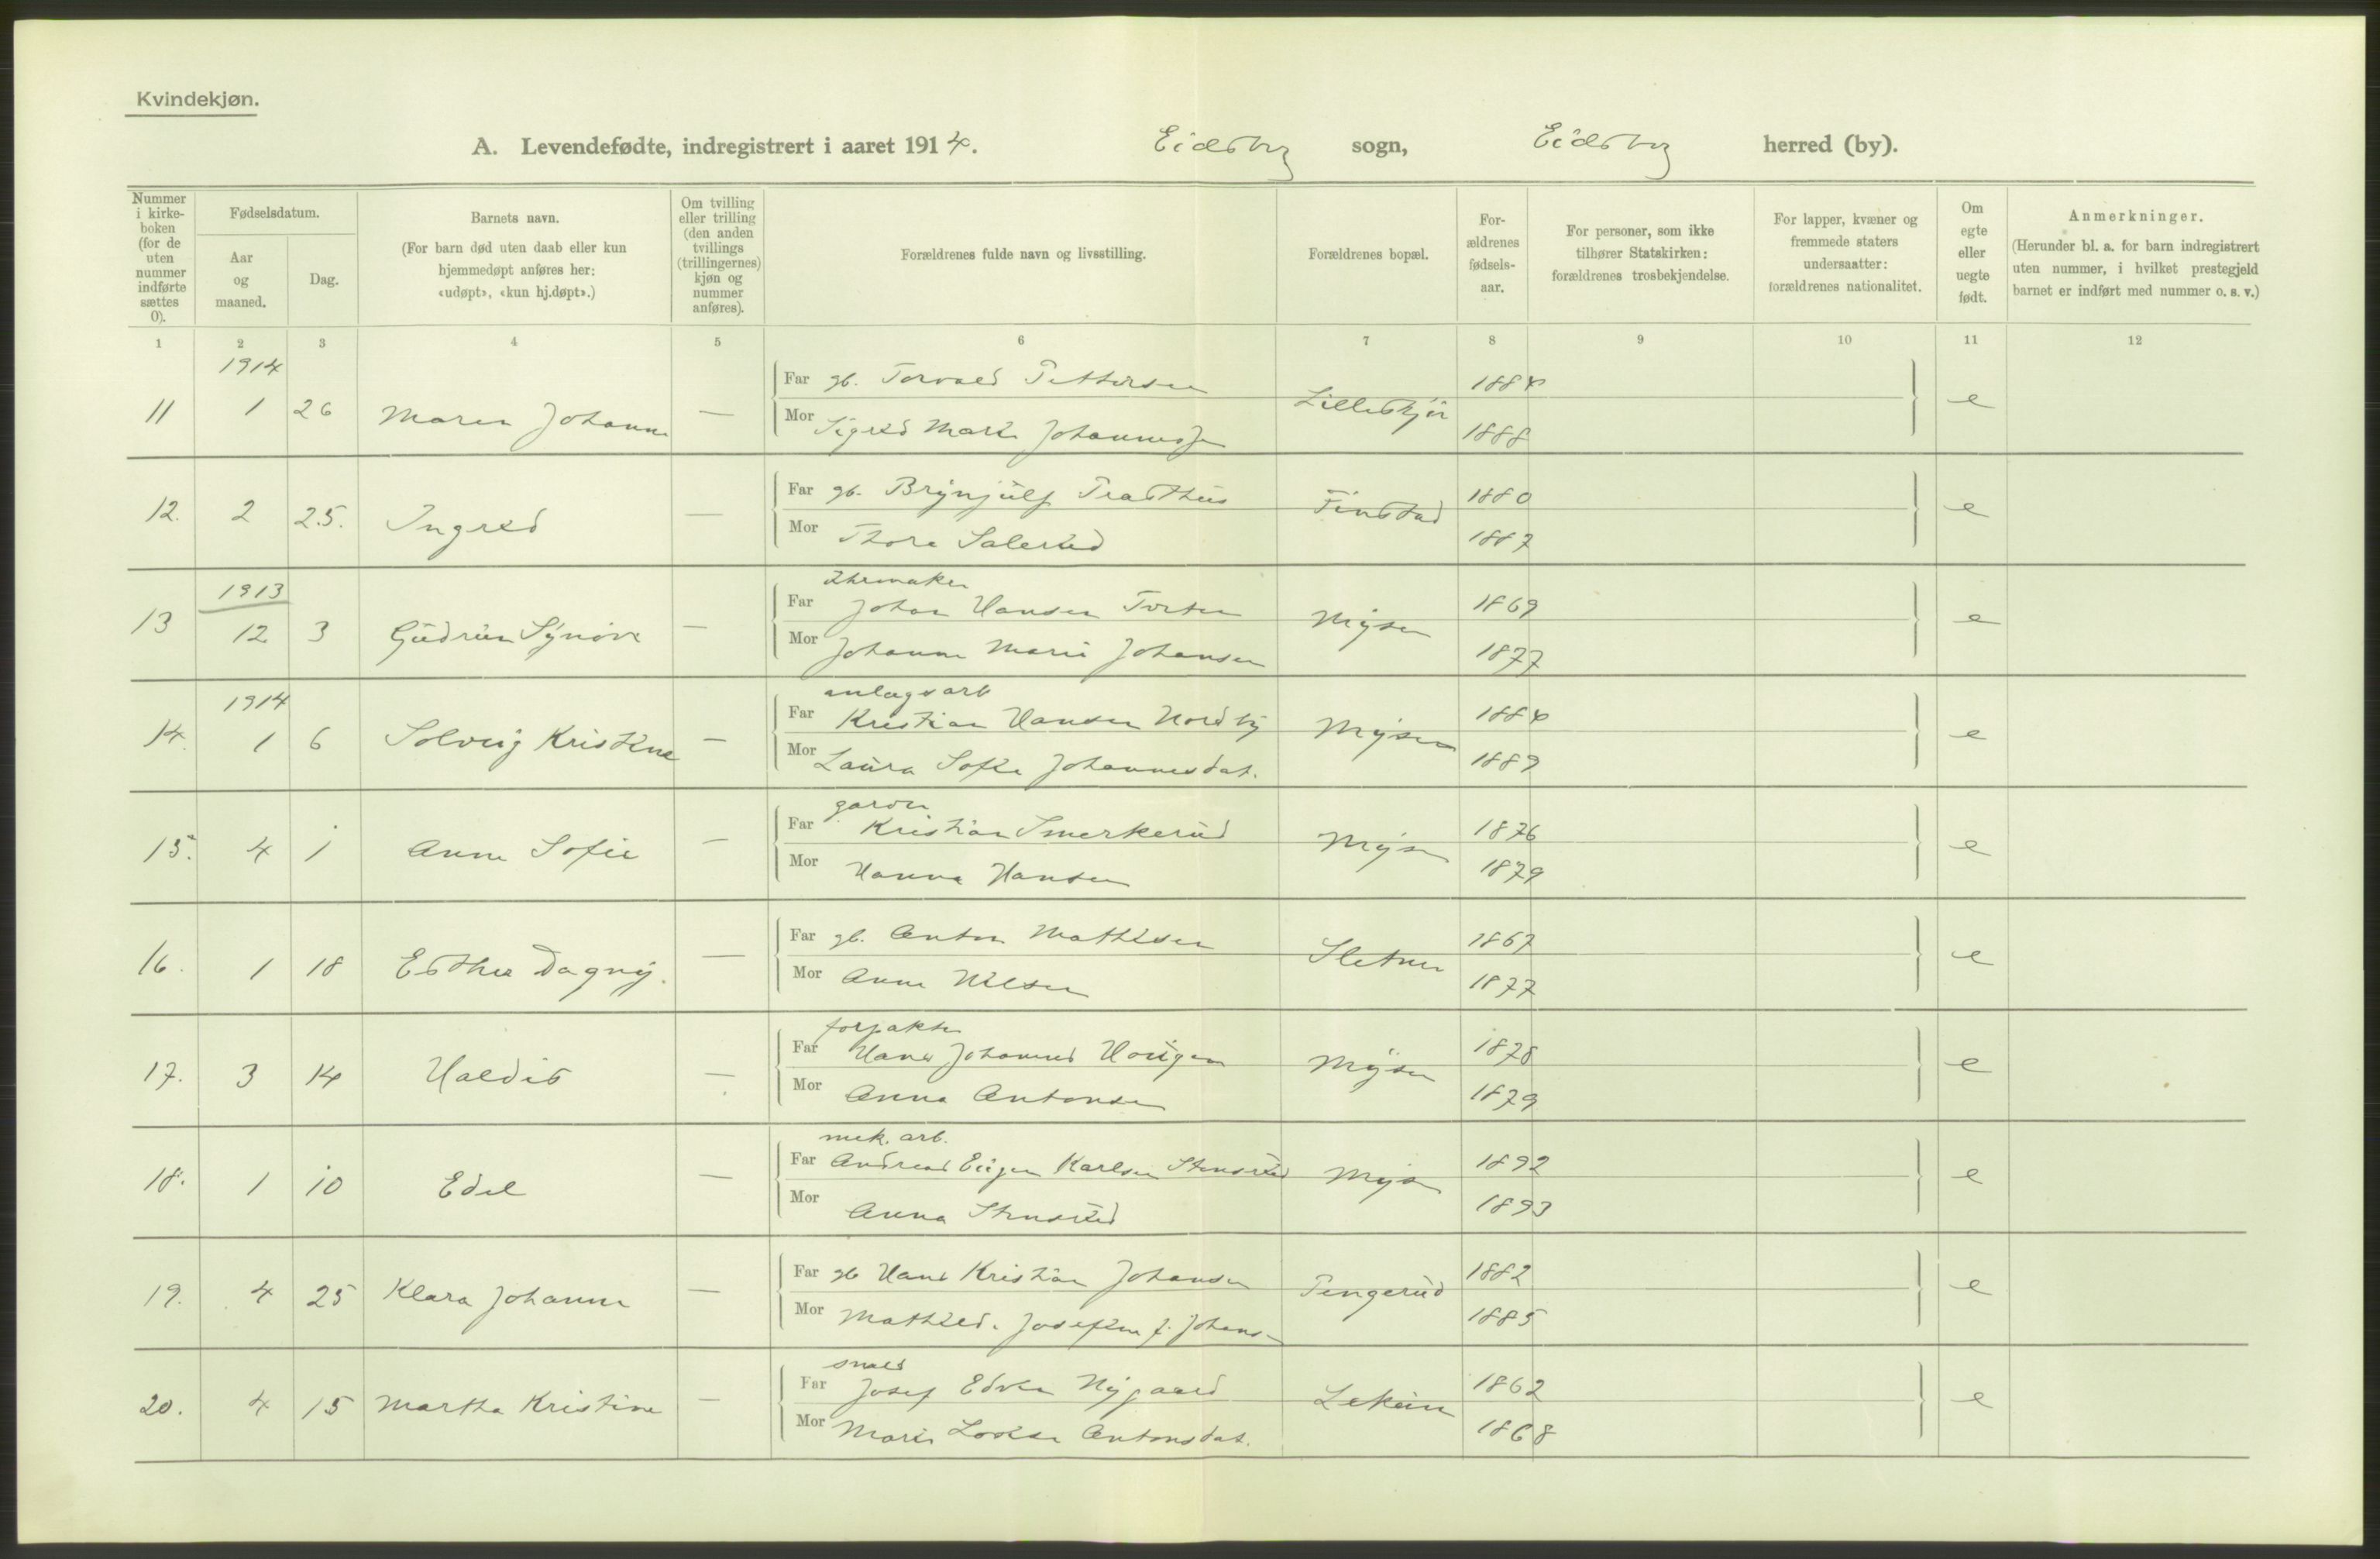 Kvindekjøn.
A. Levendefødte, indregistrert i aaret 1914. Eidsberg sogn, Eidsberg herred (by).
Nummer i kirkeboken (for de uten nummer indførte sættes 0).
Fødselsdatum.
Aar og maaned.
Dag.
Barnets navn.
(For barn død uten daab eller kun hjemmedøpt anføres her: «udøpt», «kun hj.døpt».)
Om tvilling eller trilling (den anden tvillings (trillingernes) kjøn og nummer anføres).
Forældrenes fulde navn og livsstilling.
Forældrenes bopæl.
Forældrenes fødselsaar.
For personer, som ikke tilhører Statskirken: forældrenes trosbekjendelse.
For lapper, kvæner og fremmede staters undersaatter: forældrenes nationalitet.
Om egte eller uegte født.
Anmerkninger.
(Herunder bl. a. for barn indregistrert uten nummer, i hvilket prestegjeld barnet er indført med nummer o. s. v.)
1 2 3 4 5 6 7 8 9 10 11 12
1914
11 1 26 Maren Johanne — Far gb. Torvald Pettersen Lilleskjør 1884 e
Mor Sigrid Marie Johannesen 1888
12. 2 25. Ingrid — Far gb. Brynjulf Finstad 1880 e
Mor Thora Salerud 1887
1913 Uhrmaker
13 12 3 Gudrun Synøve — Far Johan Hansen Mysen 1869 e
Mor Johanne Marie Johansen 1877
1914 anlægsarb
14. 1 6 Solveig Kristine — Far Kristian Hansen Nordby Mysen 1884 e
Mor Laura Sofie Johannesdat. 1889
garver
15. 4 1 Anne Sofie — Far Kristian Smerkerud Mysen 1876 e
Mor Hanna Hansen 1879
16. 1 18 Esther Dagny. — Far gb. Anton Mathisen Sletner 1867 e
Mor Anne Nilsen 1877
forpakter
17. 3 14 Haldis — Far Hans Johannes Mysen 1878 e
Mor Anna Antonsen 1879
mek. arb.
18. 1 10 Edel — Far Andreas Eugen Karlsen Stensrud Mysen 1892 e
Mor Anna Stensrud 1893
19. 4 25 Klara Johanne — Far gb Hans Kristian Johansen Tengerud 1882 e
Mor Mathilde Josefine f. Johansen 1885
smed
20. 4 15 Martha Kristine — Far Josef Edvin Nygaard Lekum 1862 e
Mor Marie Lovise Antonsdat. 1868